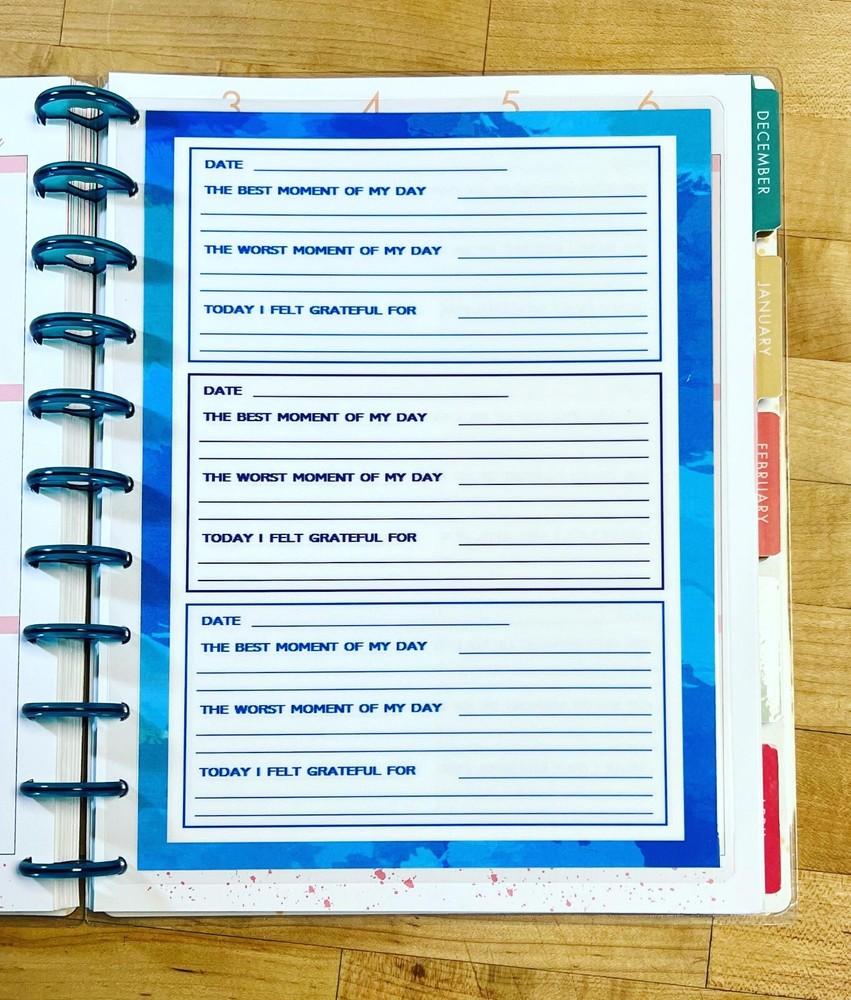 3 4 5 6
DATE
THE BEST MOMENT OF MY DAY
THE WORST MOMENT OF MY DAY
TODAY I FELT GRATEFUL FOR
DATE
THE BEST MOMENT OF MY DAY
THE WORST MOMENT OF MY DAY
TODAY I FELT GRATEFUL FOR
DATE
THE BEST MOMENT OF MY DAY
THE WORST MOMENT OF MY DAY
TODAY I FELT GRATEFUL FOR
DECEMBER
JANUARY
FEBRUARY